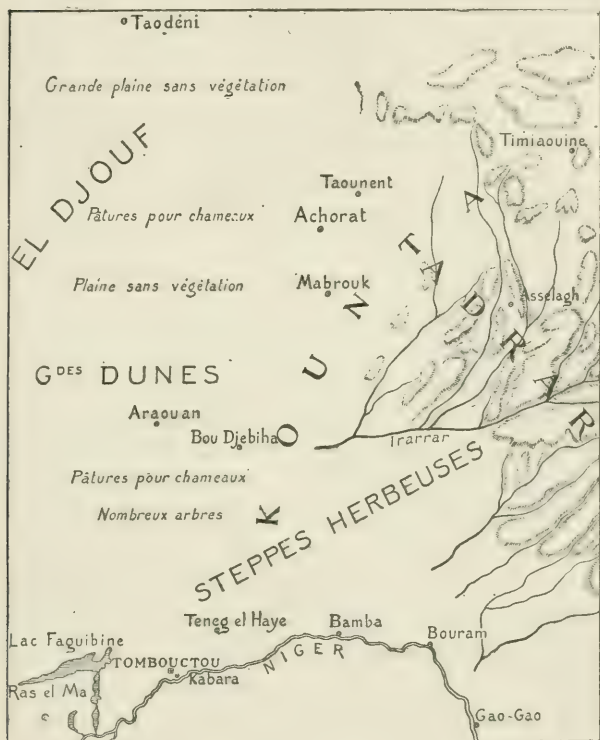 Taodéni
Grande plaine sans végétation
Timiaouine
EL DJOUF
Taounent
Pâtures pour chameaux
Achorat
Plaine sans végétation
Mabrouk
Asselagh
KOUNTA
ADRAR
GDES DUNES
Araouan
Bou Djebiha
Irarrar
Pâtures pour chameaux
Nombreux arbres
STEPPES HERBEUSES
Teneg el Haye
Bamba
Bouram
Lac Faguibine
TOMBOUCTOU
NIGER
Kabara
Ras el Ma
Gao-Gao